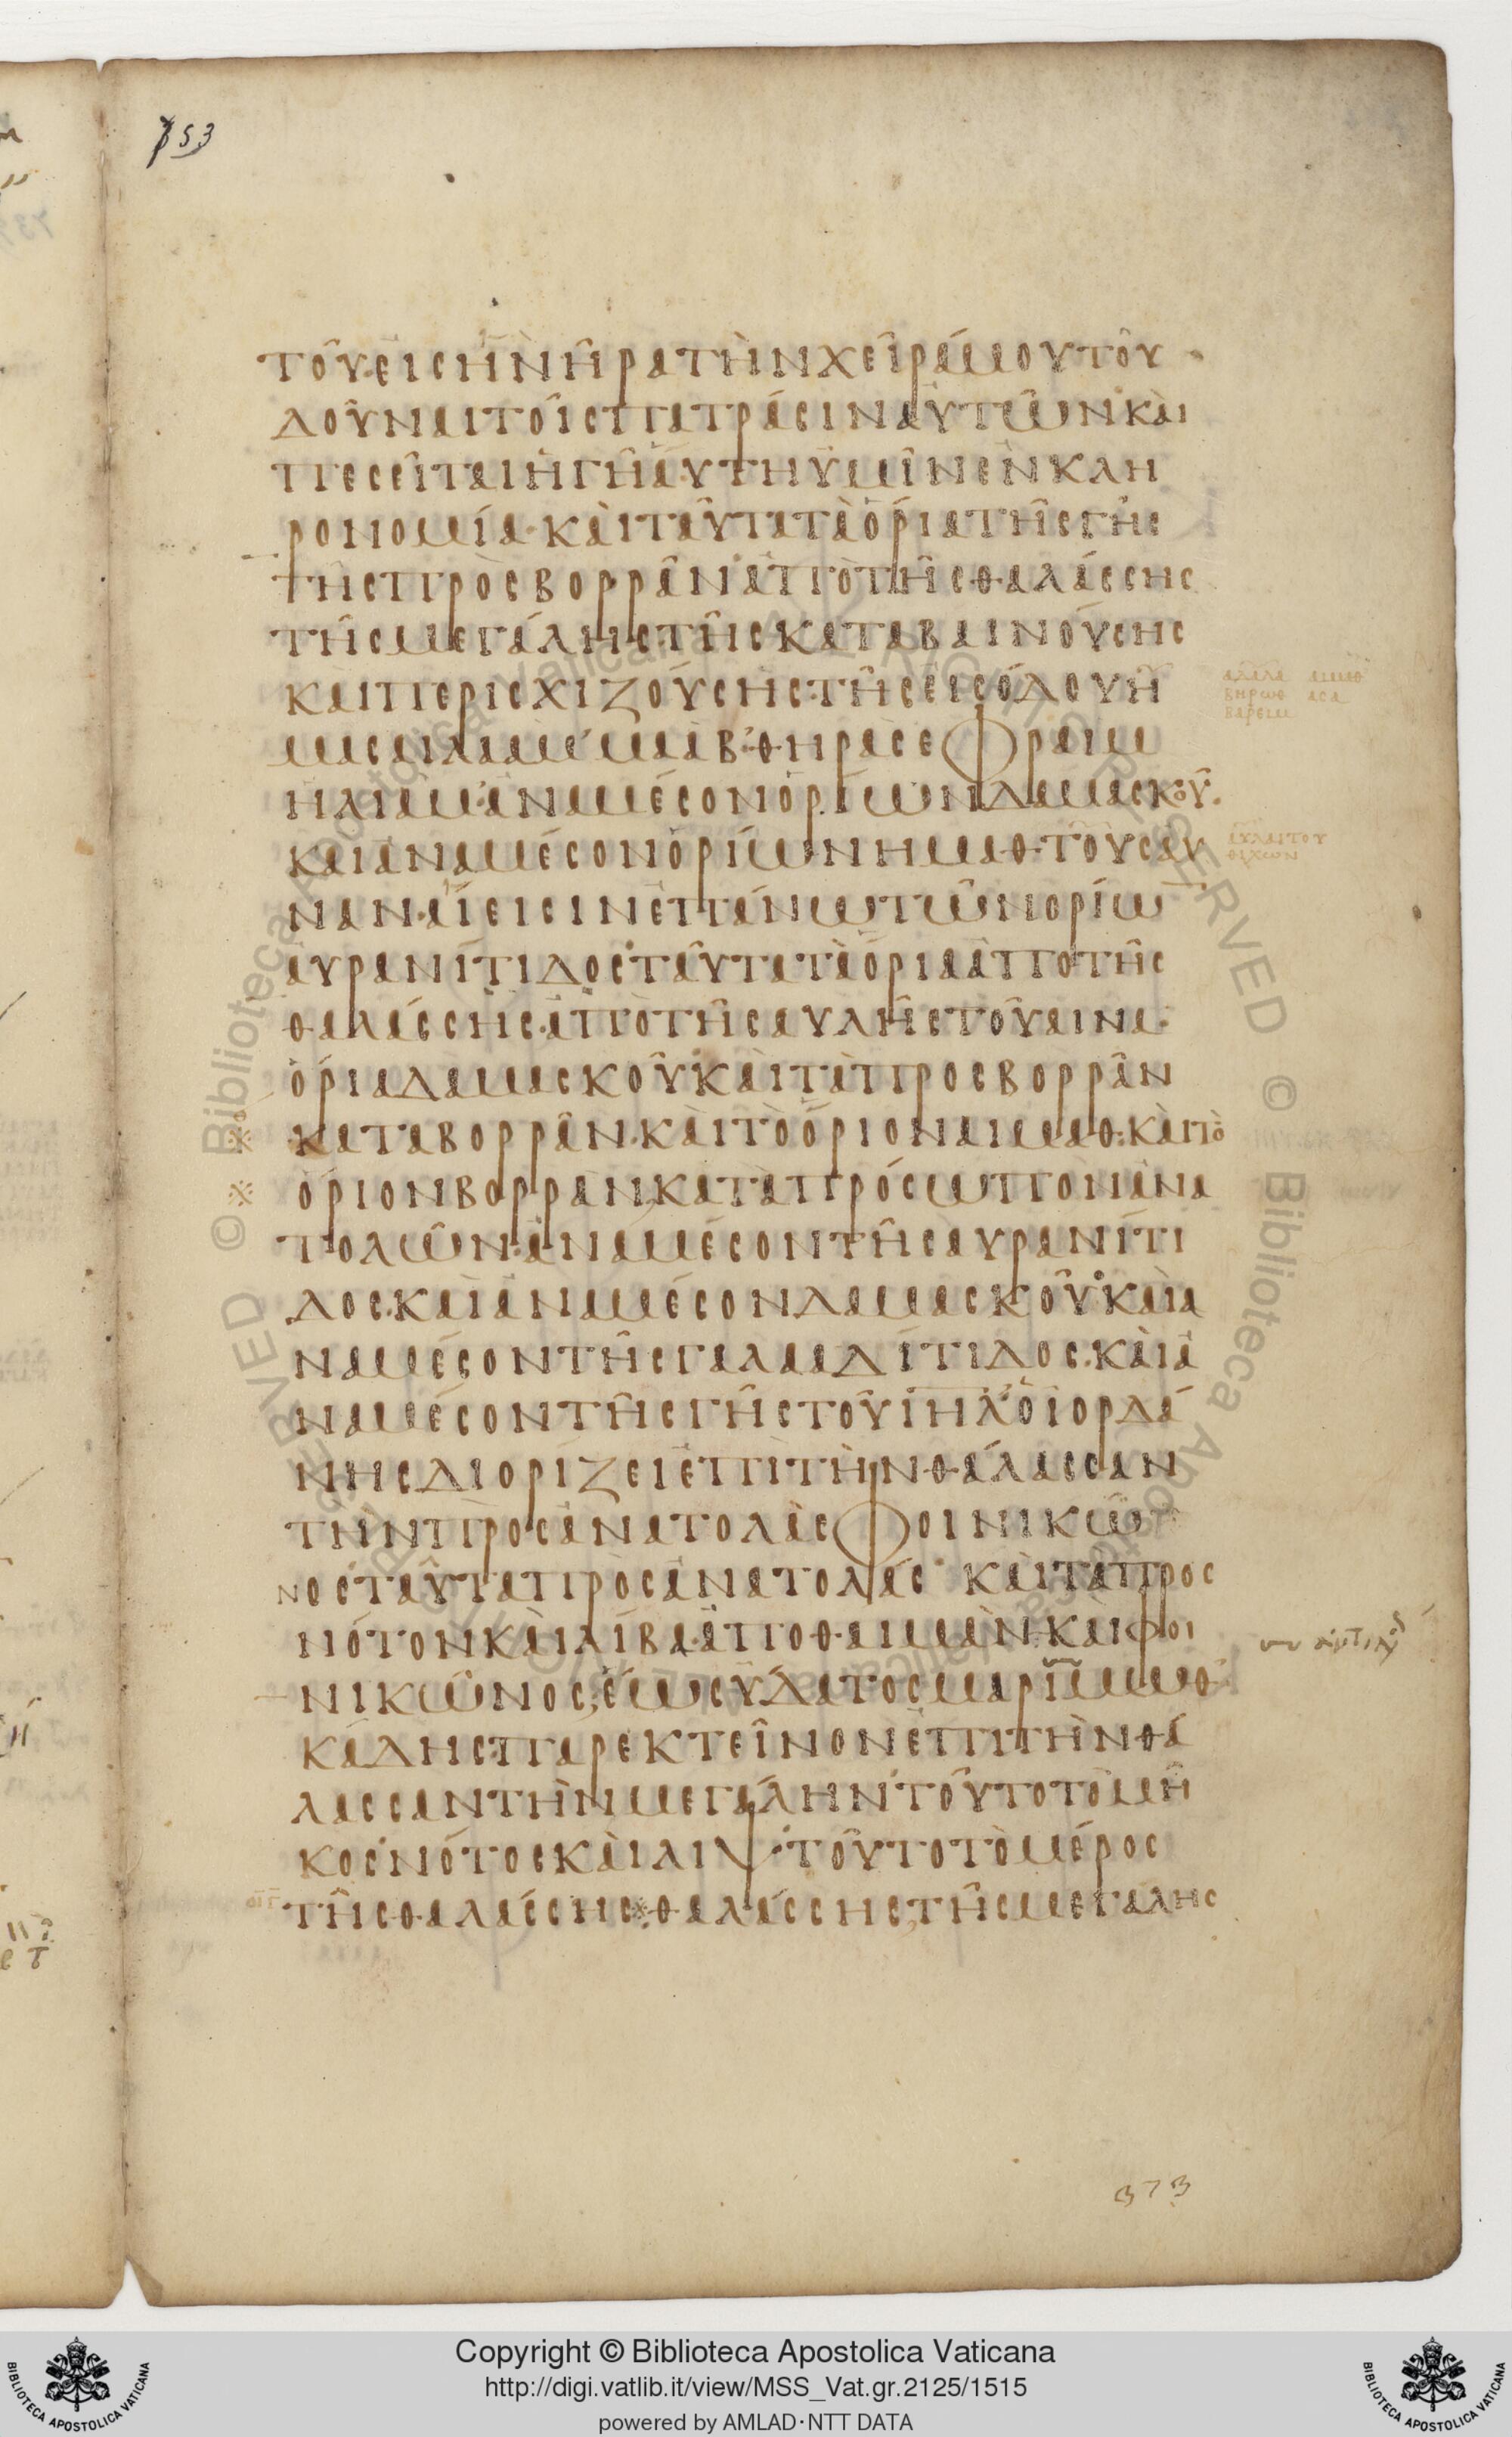 753
ΤΟῦ·ΕΙΣ ἣΝ ἦΡΑ ΤῊΝ ΧΕῖΡΆ ΜΟΥ ΤΟῦ
ΔΟῦΝΑΙ ΤΟῖΣ ΠΑΤΡΆΣΙΝ ΑὐΤῶΝ· ΚΑὶ
ΠΕΣΕῖΤΑΙ ἡ Γῆ ΑὕΤΗ ὑΜῖΝ ἐΝ ΚΛΗ
ΡΟΝΟΜίΑ· ΚΑὶ ΤΑῦΤΑ Τὰ ὅΡΙΑ ΤῆΣ ΓῆΣ
ΤῆΣ ΠΡὸΣ ΒΟΡΡᾶΝ· ἀΠὸ ΤῆΣ ΘΑΛΆΣΣΗΣ
ΤῆΣ ΜΕΓΆΛΗΣ· ΤῆΣ ΚΑΤΑΒΑΙΝΟύΣΗΣ
ΚΑΙ ΠΕΡΙΣΧΙΖΟύΣΗΣ· ΤῆΣ ΕΙΣόΔΟΥ Η
ΜΑΣΑΙΛΑΜ ΕΜΑΑΒΘΗΡΑΣ ΕΦΡΑΙΜ
ΗΛΙΑΜ· ἀΝΑΜέΣΟΝ ὁΡίωΝ ΔΑΜΑΣΚΟῦ·
ΚΑΙ ἀΝΑΜέΣΟΝ ὁΡίωΝ ΗΜΑΘ· ΤΟΥ ΣΑΥ
ΝΑΝ· Αἵ ΕΙΣΙΝ ἐΠΆΝω ΤῶΝ ΟΡίω̅
ΑὐΡΑΝίΤΙΔΟΣ· ΤΑῦΤΑ Τὰ ὅΡΙΑ ἀΠΟ ΤῆΣ
ΘΑΛΆΣΣΗΣ· ἀΠὸ ΤῆΣ ΑΥΛῆΣ ΤΟῦ ΑΙΝΑ·
ὅΡΙΑ ΔΑΜΑΣΚΟῦ· ΚΑὶ Τὰ ΠΡΟΣ ΒΟΡΡᾶΝ
※ ΚΑΤΑ ΒΟΡΡᾶΝ· ΚΑὶ Τὸ ὅΡΙΟΝ ΑΙΜΑΘ: ΚΑὶ Τὸ
※ ὅΡΙΟΝ ΒΟΡΡᾶΝ ΚΑΤὰ ΠΡόΣωΠΟΝ ἀΝΑ
ΤΟΛῶΝ· ἀΝΑΜέΣΟΝ ΤῆΣ ΑὐΡΑΝίΤΙ
ΔΟΣ· ΚΑὶ ἀΝΑΜέΣΟΝ ΔΑΜΑΣΚΟῦ· ΚΑὶ ἀ
ΝΑΜέΣΟΝ ΤῆΣ ΓΑΛΑΑΔίΤΙΔΟΣ· ΚΑὶ ἀ
ΝΑΜέΣΟΝ ΤῆΣ ΓῆΣ ΤΟῦ ΙΗΛ· ὁ ΙΟΡΔΆ
ΝΗΣ ΔΙΟΡΙΖΕΙ ἐΠὶ ΤῊΝ ΘΆΛΑΣΣΑΝ
ΤΗΝ ΠΡΟΣ ἀΝΑΤΟΛὰΣ ΦΟΙΝΙΚῶ
ΝΟΣ· ΤΑῦΤΑ ΠΡὸΣ ἀΝΑΤΟΛΆΣ· ΚΑὶ Τὰ ΠΡΟΣ
ΝόΤΟΝ ΚΑὶ ΛίΒΑ· ἀΠΟ ΘΑΙΜὰΝ· ΚΑὶ ΦΟΙ
ΝΙΚῶΝΟΣ, ἕωΣ ὕΔΑΤΟΣ ΜΑΡΙΜωΘ
ΚΆΔΗΣ· ΠΑΡΕΚΤΕῖΝΟΝ ἐΠὶ ΤῊΝ ΘΆ
ΛΑΣΣΑΝ ΤῊΝ ΜΕΓΆΛΗΝ· ΤΟῦΤΟ Τὸ Μῆ
ΚΟΣ· ΝόΤΟΣ ΚΑὶ ΛΙΨ· ΤΟῦΤΟ Τὸ ΜέΡΟΣ
ΤῆΣ ΘΑΛΆΣΣΗΣ※ ΘΑΛΆΣΣΗΣ, ΤῆΣ ΜΕΓΆΛΗΣ
373
Copyright © Biblioteca Apostolica Vaticana
http://digi.vatlib.it/view/MSS_Vat.gr.2125/1515
powered by AMLAD·NTT DATA
BIBLIOTECA APOSTOLICA VATICANA
BIBLIOTECA APOSTOLICA VATICANA